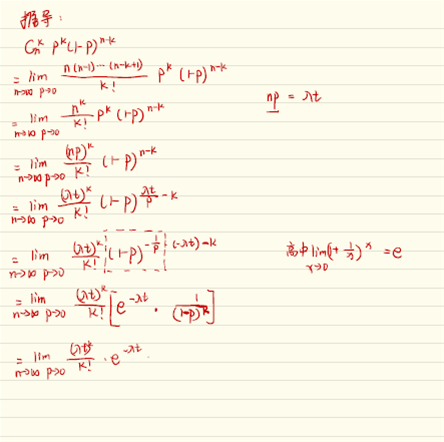 推导:
C_n^k p^k (1-p)^{n-k}
= lim_{n→∞ p→0} \frac{n(n-1)···(n-k+1)}{k!} p^k (1-p)^{n-k}
np = λt
= lim_{n→∞ p→0} \frac{n^k}{k!} p^k (1-p)^{n-k}
= lim_{n→∞ p→0} \frac{(np)^k}{k!} (1-p)^{n-k}
= lim_{n→∞ p→0} \frac{(λt)^k}{k!} (1-p)^{\frac{λt}{p}-k}
= lim_{n→∞ p→0} \frac{(λt)^k}{k!} (1-p)^{-\frac{1}{p}·(-λt)-k}
高中 lim_{x→0} (1+\frac{1}{x})^x = e
= lim_{n→∞ p→0} \frac{(λt)^k}{k!} [e^{-λt} · \frac{1}{(1-p)^k}]
= lim_{n→∞ p→0} \frac{(λt)^k}{k!} · e^{-λt}.